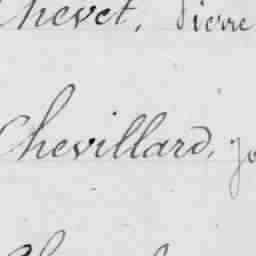 Chevet, Pierre
Chevillard, Jo